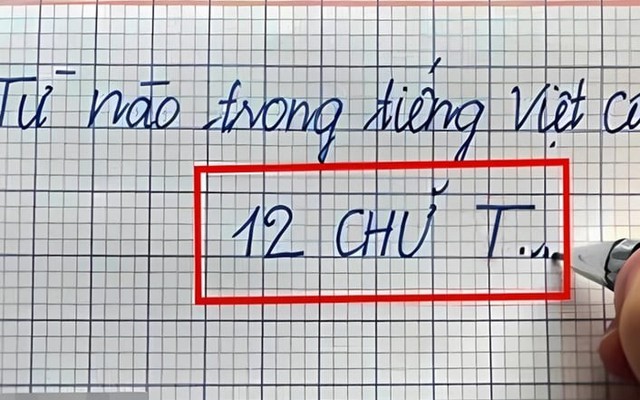 Từ nào trong tiếng Việt
12 CHỮ T...